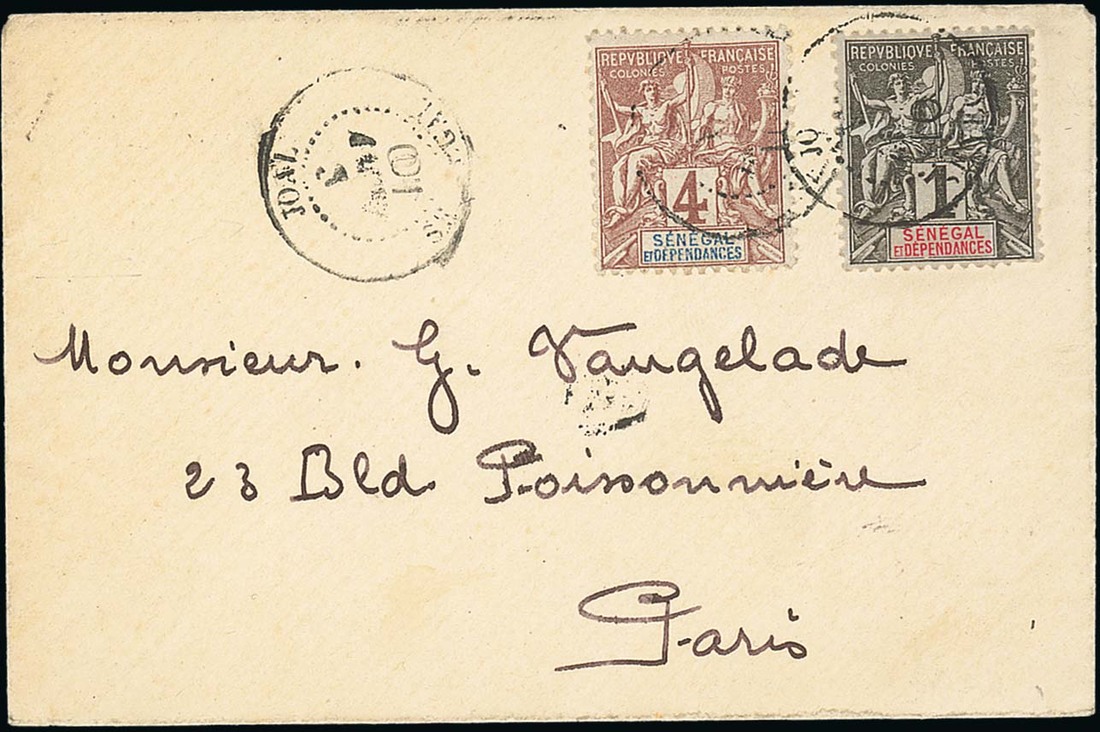 JOAL
3
REPVBLIQVE FRANÇAISE
COLONIES POSTES
4
SÉNÉGAL
ET DÉPENDANCES
REPVBLIQVE FRANÇAISE
COLONIES POSTES
1
SÉNÉGAL
ET DÉPENDANCES
JO
Monsieur. G. Vaugelade
23 Bld. Poissonnière
Paris